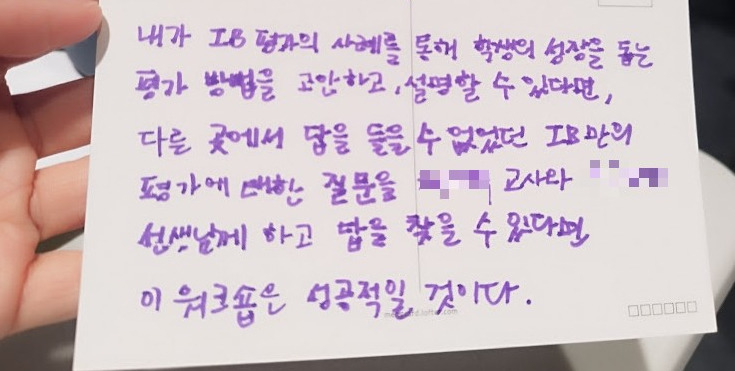 내가 IB 평가의 사례를 통해 학생의 성장을 돕는
평가 방법을 고안하고, 설명할 수 있다면,
다른 곳에서 답을 들을 수 없었던 IB만의
평가에 대한 질문을 교사와
선생님께 하고 답을 찾을 수 있다면
이 워크숍은 성공적일 것이다.